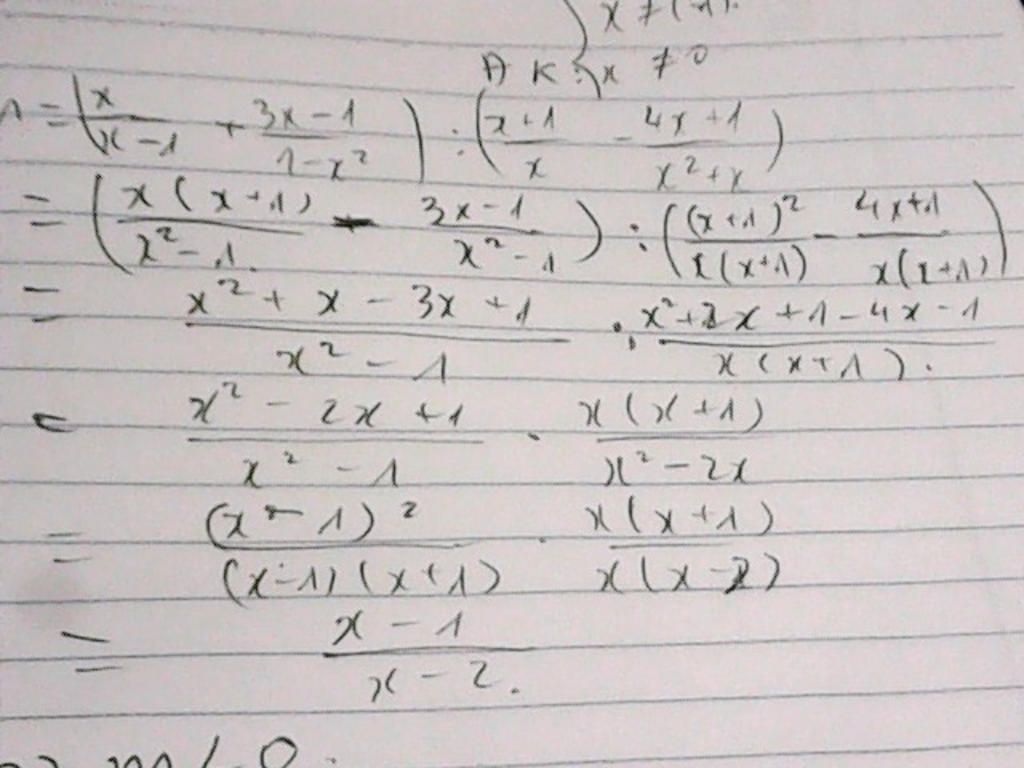 x ≠ (-1).
Đ K : x ≠ 0
A = (x/(x-1) + (3x-1)/(1-x²)) : ((x+1)/x - (4x+1)/(x²+x))
= (x(x+1)/(x²-1) - (3x-1)/(x²-1)) : ((x+1)²/(x(x+1)) - (4x+1)/(x(x+1)))
= (x²+x-3x+1)/(x²-1) : (x²+2x+1-4x-1)/(x(x+1)).
= (x²-2x+1)/(x²-1) . x(x+1)/(x²-2x)
= (x-1)²/((x-1)(x+1)) . x(x+1)/(x(x-2))
= (x-1)/(x-2).